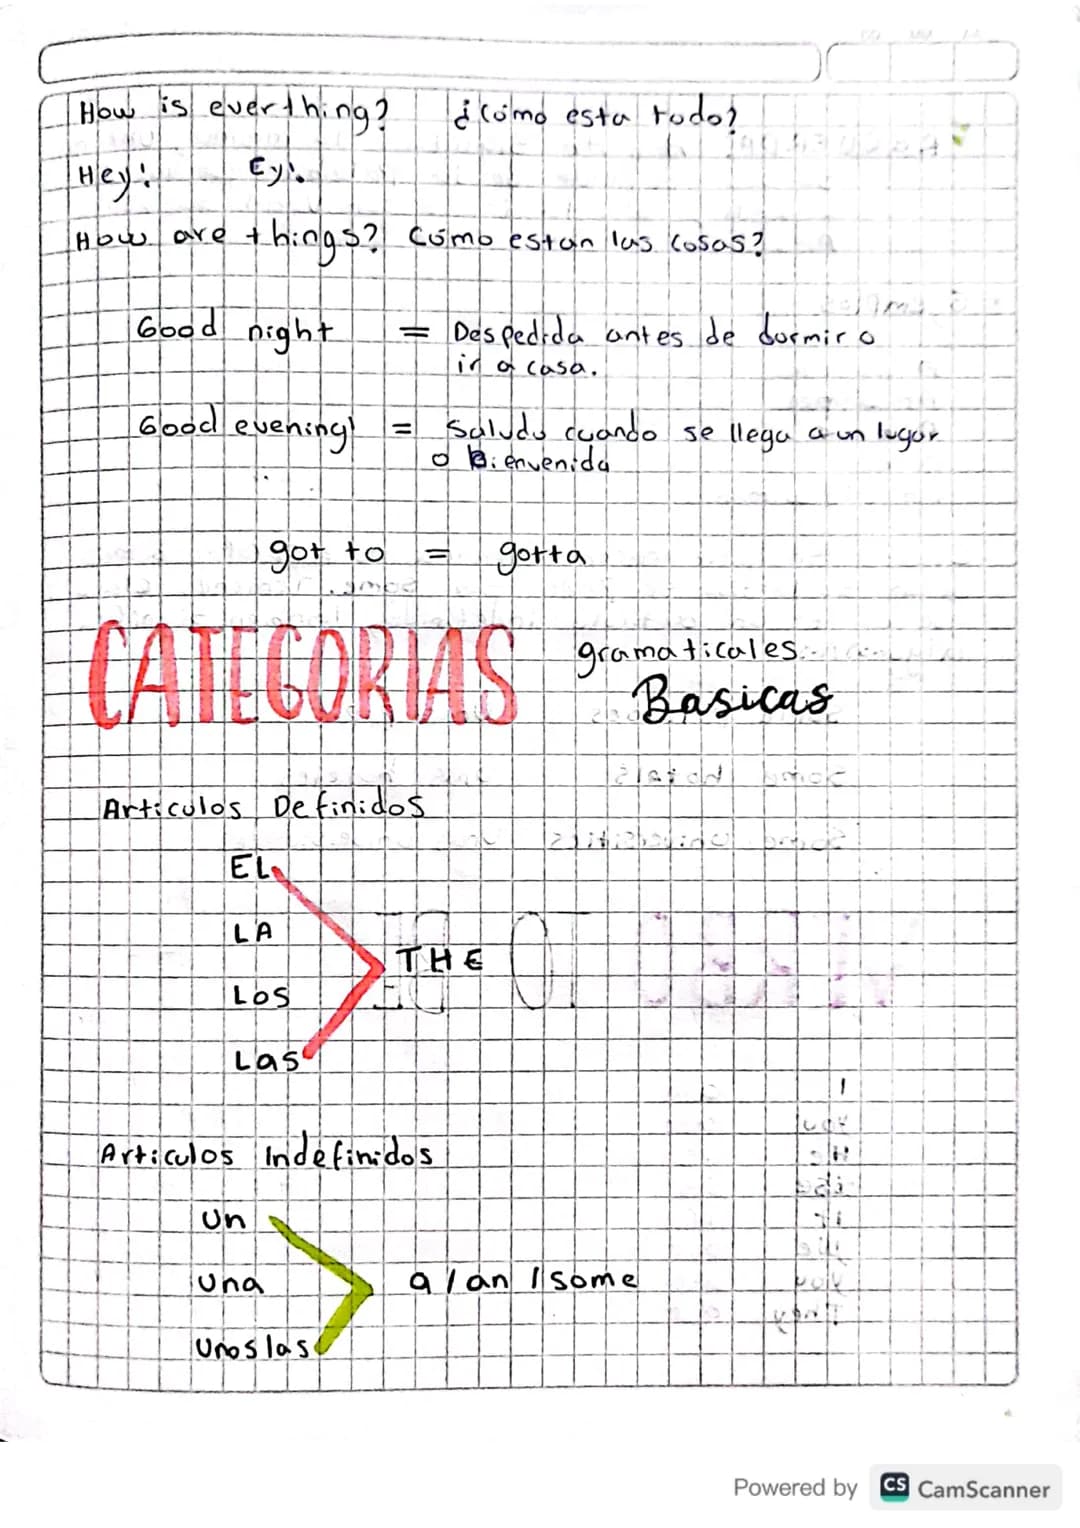 How is everthing? ¿Cómo esta todo?
Hey! Ey!
How are things? Cómo estan las cosas?
Good night = Despedida antes de dormir o
ir a casa.
Good evening = Saludo cuando se llega a un lugar
o Bienvenida
got to = gotta
CATEGORIAS gramaticales
Basicas
Articulos Definidos
EL
LA
THE
LOS
Las
Articulos Indefinidos
Un
Una a / an / some
Unos las
Powered by CS CamScanner